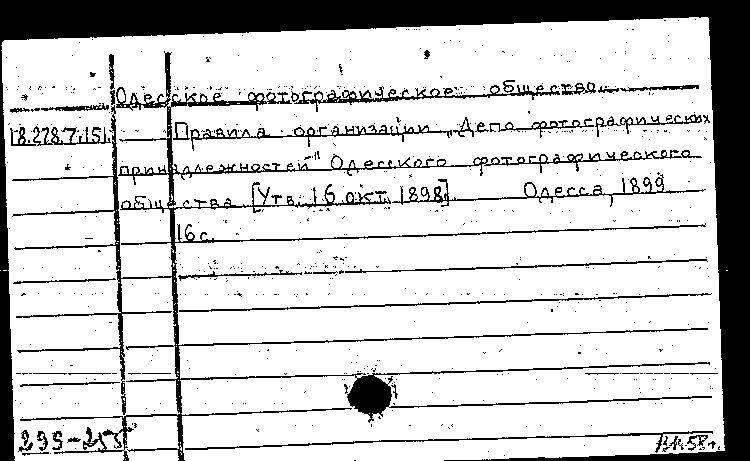 Одесское фотографическое общество.
18.278.7.151. Правила организации „Депо фотографических
принадлежностей" Одесского фотографического
общества. [Утв. 16 окт. 1898]. Одесса, 1899
16 с.
299-255